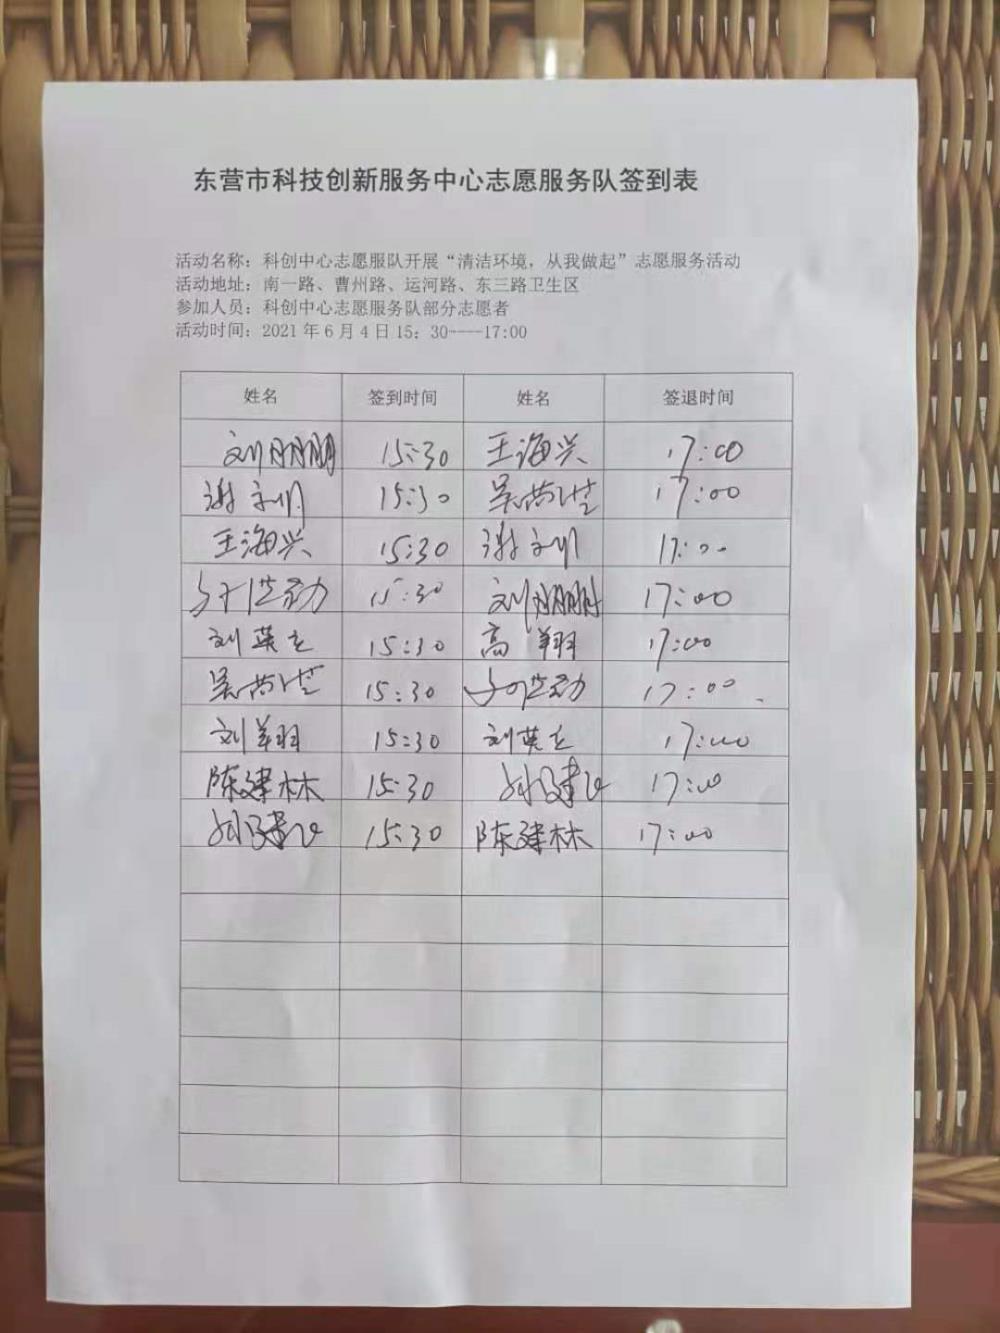 东营市科技创新服务中心志愿服务队签到表
活动名称：科创中心志愿服队开展“清洁环境，从我做起”志愿服务活动
活动地址：南一路、曹州路、运河路、东三路卫生区
参加人员：科创中心志愿服务队部分志愿者
活动时间：2021年6月4日15：30----17:00
姓名 签到时间 姓名 签退时间
刘朋朋 15:30 王海兴 17:00
谢 15:30 吴 17:00
王海兴 15:30 谢 17:00
15:30 刘朋朋 17:00
刘英 15:30 高翔 17:00
吴 15:30 17:00
刘翔 15:30 刘英 17:00
陈建林 15:30 17:00
15:30 陈建林 17:00